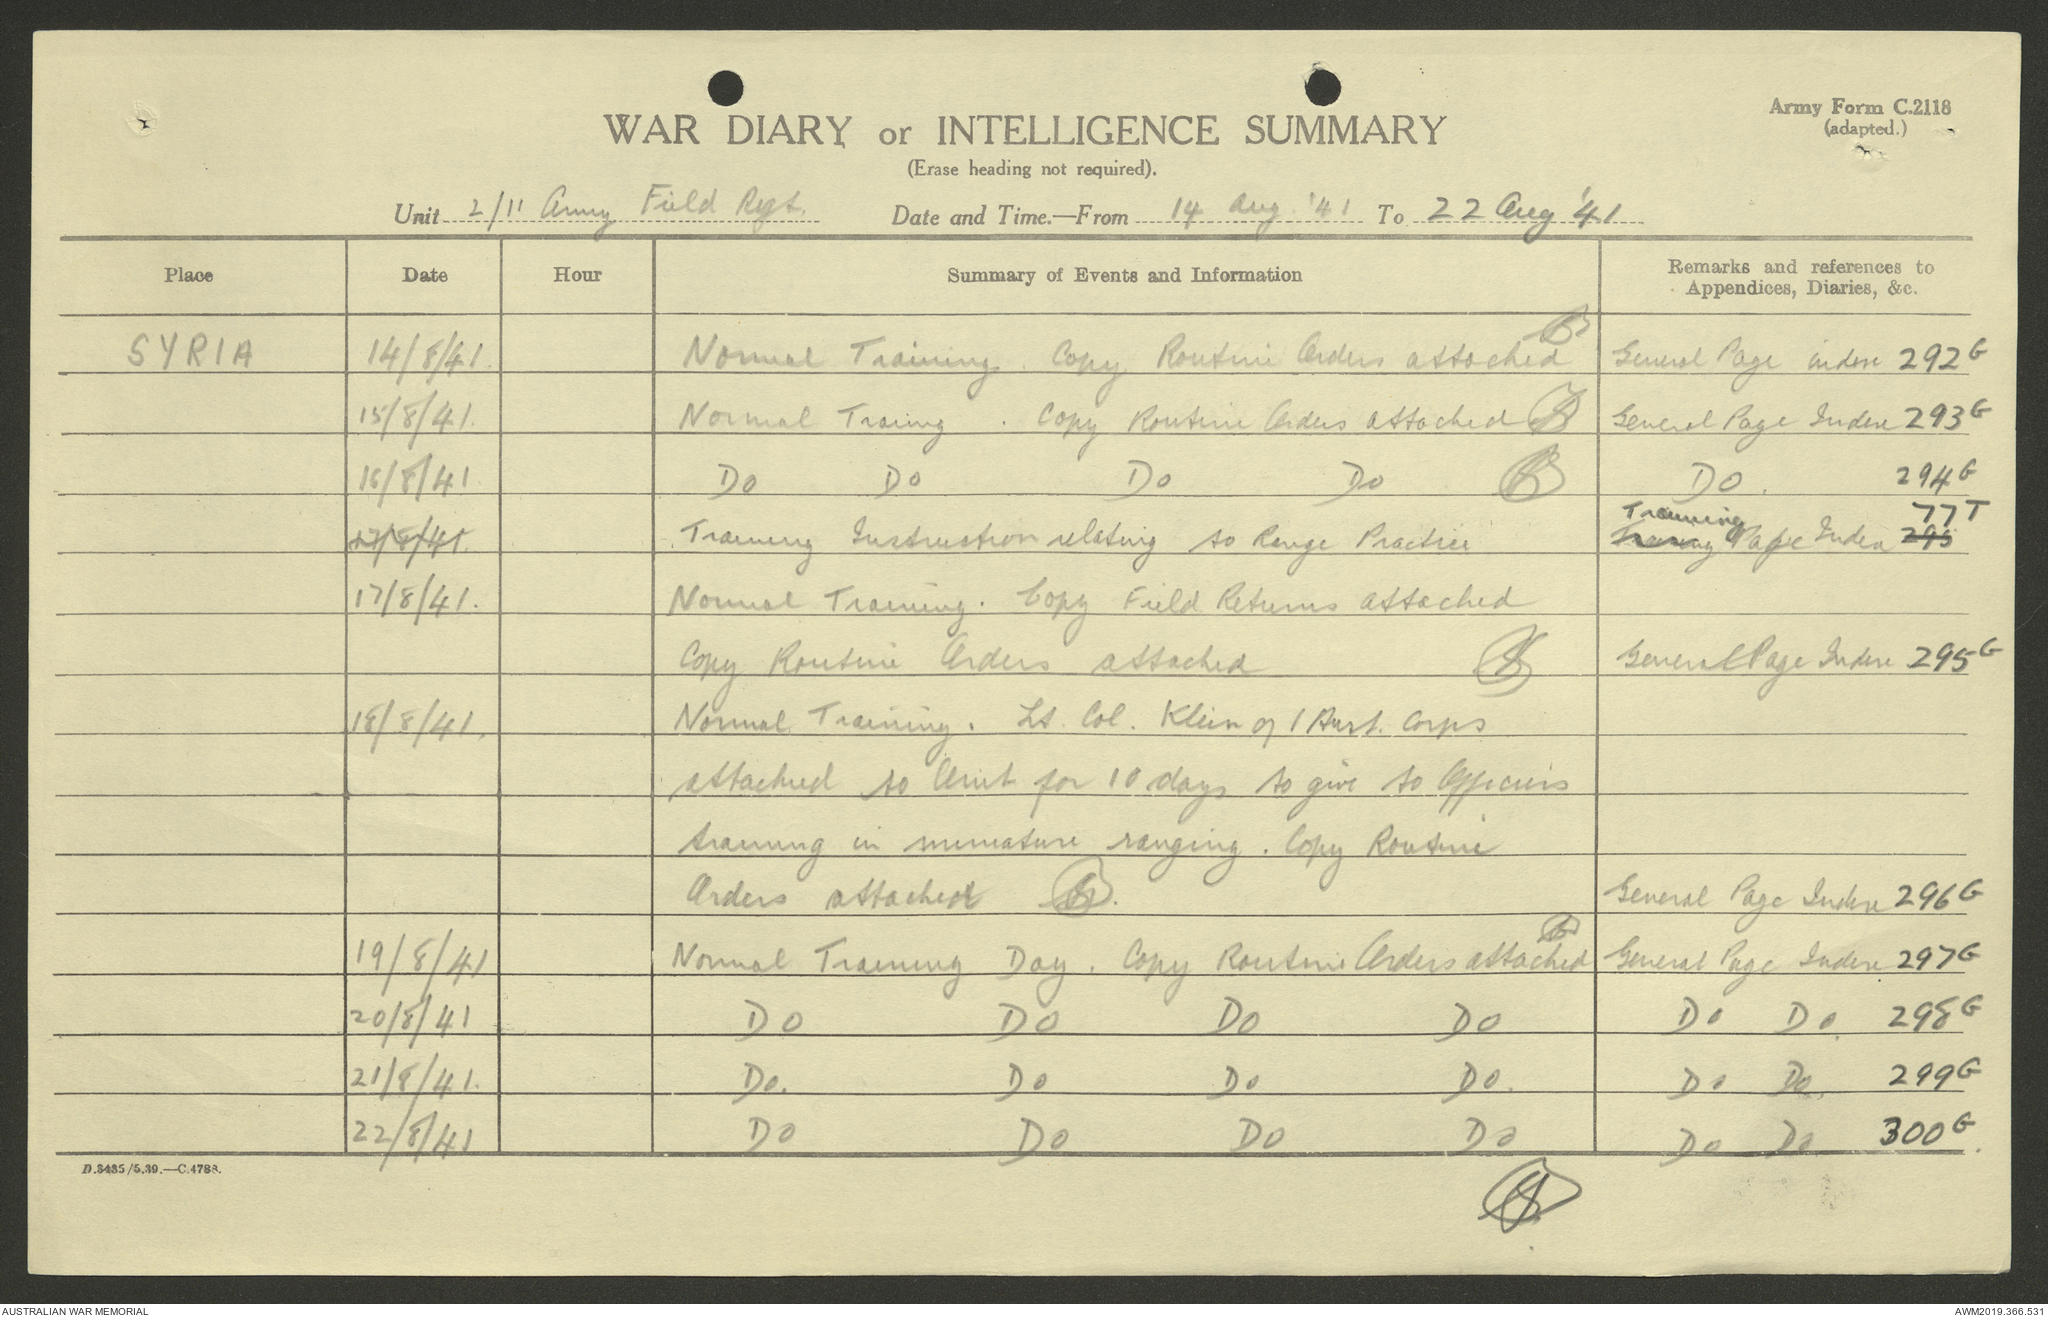 Army Form C.2118
(adapted.)
WAR DIARY or INTELLIGENCE SUMMARY
(Erase heading not required).
Unit 2/11 Army Field Regt. Date and Time.—From 14 Aug. '41 To 22 Aug '41
Place Date Hour Summary of Events and Information Remarks and references to
Appendices, Diaries, &c.
SYRIA 14/8/41. Normal Training. Copy Routine Orders attached General Page index 292G
15/8/41. Normal Traing. Copy Routine Orders attached General Page Index 293G
16/8/41 Do Do Do Do Do. 294G
Training 77T
17/8/41. Training Instruction relating to Range Practice Training Page Index 295
17/8/41. Normal Training. Copy Field Returns attached
Copy Routine Orders attached General Page Index 295G
18/8/41. Normal Training. Lt. Col. Klein of 1 Aust. Corps
attached to Unit for 10 days to give to Officers
training in miniature ranging. Copy Routine
Orders attached. General Page Index 296G
19/8/41 Normal Training Day. Copy Routine Orders attached General Page Index 297G
20/8/41 Do Do Do Do Do Do. 298G
21/8/41. Do. Do Do Do. Do Do. 299G
22/8/41 Do Do Do Do Do Do 300G.
D.3435/5.39.—C.4788.
AUSTRALIAN WAR MEMORIAL AWM2019.366.531